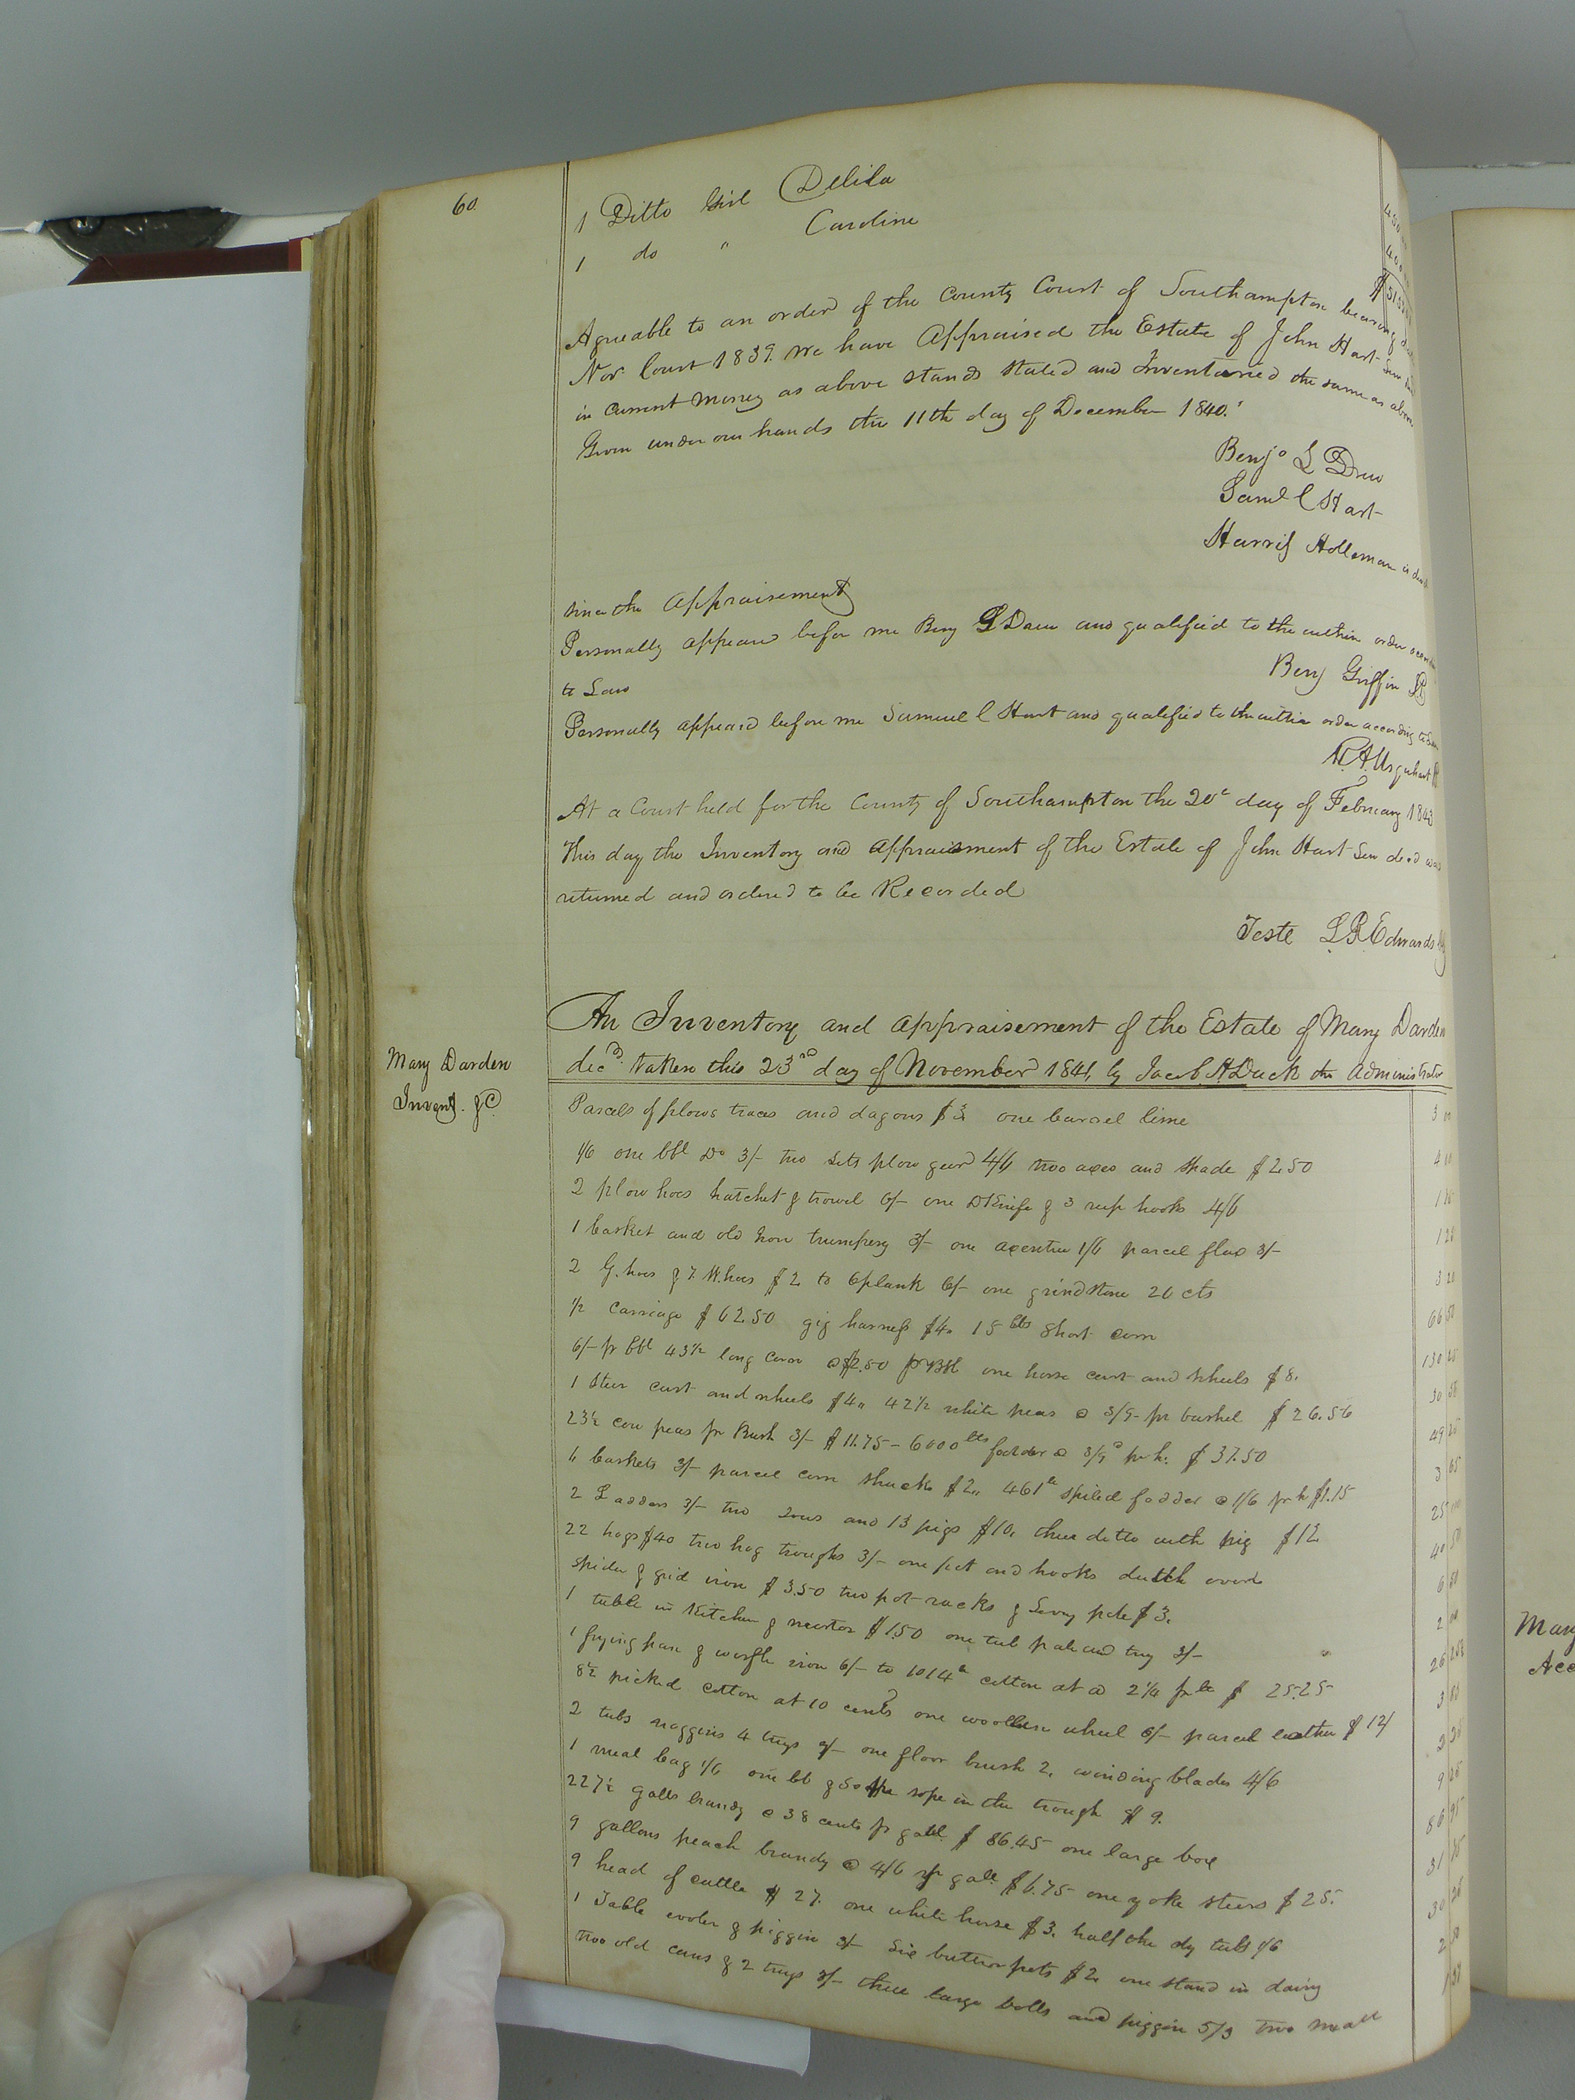 60
1 Ditto Girl Delila 450
1 do " Caroline 400
Agreable to an order of the County Court of Southampton bearing
Nov. Court 1839. We have Appraised the Estate of John Hart Sen
in Current Money as above stands stated and Inventoried the same as above
Given under our hands this 11th day of December 1840.
Benjn L Drew
Saml C Hart
Harris Holleman is
since the Appraisement
Personally appeared before me Benj L Drew and qualified to the within order
to Law
Benj Griffin JP
Personally appeard before me Samuel C Hart and qualified to the within order according to
Urquhart
At a Court held for the County of Southampton the 20th day of February 1843
This day the Inventory and Appraisment of the Estate of John Hart Sen decd was
returned and ordered to be Recorded
Teste L.R. Edwards
An Inventory and Appraisement of the Estate of Mary Darden
decd. taken this 23rd day of November 1841, by Jacob H Duck the Administrator
Mary Darden
Invent. &C
Parcels of plows traces and dagons $3 one barrel lime 3
1/6 one bbl Do 3/- two sets plow gear 4/6 two axes and spade $2.50 4
2 plow hoes hatchet & trowel 6/- one DKnife & 3 reap hooks 4/6
1 basket and old Iron trumpery 3/- one axentree 1/6 parcel flax 3/-
2 G.hoes & 7 W.hoes $2. to 6 plank 6/- one grindstone 20 cts 3 20
1/2 Carriage $62.50 gig harness $4. 15 bbls Short corn 66 50
6/- pr bbl 43 1/2 long corn @ $2.50 pr Bbl one horse cart and wheels $8.
1 Steer cart and wheels $4,, 42 1/2 white peas @ 3/9 pr bushel $26.56
23 1/2 cow peas pr Bush 3/- $11.75 - 6000 lbs fodder @ 3/9 pr h. $37.50
baskets 3/- parcel corn shucks $2,, 461 lb spiled fodder @ 1/6 pr h $1.15
2 Ladders 3/- two sows and 13 pigs $10. three ditto with pig $12
22 hogs $40 two hog troughs 3/- one pot and hooks dutch oven
spider & grid iron $3.50 two pot-racks & pole $3.
1 table in Kitchen & morter $1.50 one tub pale and tray 3/-
1 frying pan & waffle iron 6/- to 1014 lb cotton at @ 2 1/4 pr lb $25.25
8 1/2 picked cotton at 10 cents one woollen wheel 6/- parcel leather $12
2 tubs noggins 4 trays one floor brush 2. winding blades 4/6
1 meal bag 1/6 one bb & soap in the trough $9.
227 1/2 galls brandy @ 38 cents pr gall $86.45 one large box
9 gallons peach brandy @ 4/6 pr gall $6.75 one yoke steers $25.
9 head of cattle $27. one white horse $3. half tubs 1/6
1 Table cooler & piggin 3/- Six butter pots $2. one stand in dairy
two old cans & 2 trays 3/- three large bolls and piggin 5/3 two small
Mary
Acc